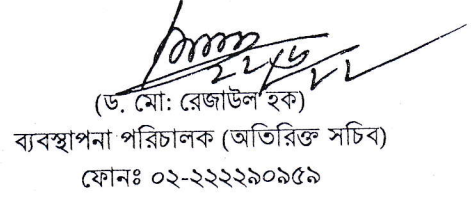 (ড. মো: রেজাউল হক)
ব্যবস্থাপনা পরিচালক (অতিরিক্ত সচিব)
ফোনঃ ০২-২২২২৯০৯৫৯